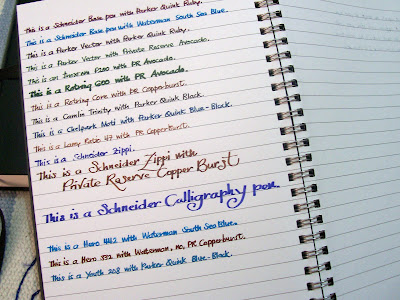 This is a Schneider Base pen with Parker Quink Ruby.
This is a Schneider Base pen with Waterman South Sea Blue.
This is a Parker Vector with Parker Quink Ruby.
This is a Parker Vector with Private Reserve Avocado.
This is an Inoxcrom F200 with PR Avocado.
This is a Rotring 600 with PR Avocado.
This is a Rotring Core with PR Copperburst.
This is a Camlin Trinity with Parker Quink Black.
This is a Chelpark Moti with Parker Quink Blue-Black.
This is a Lamy Ratio 47 with PR Copperburst.
This is a Schneider Zippi.
This is a Schneider Zippi with
Private Reserve Copper Burst
This is a Schneider Calligraphy pen.
This is a Hero 442 with Waterman South Sea Blue.
This is a Hero 332 with Waterman, no, PR Copperburst.
This is a Youth 208 with Parker Quink Blue-Black.